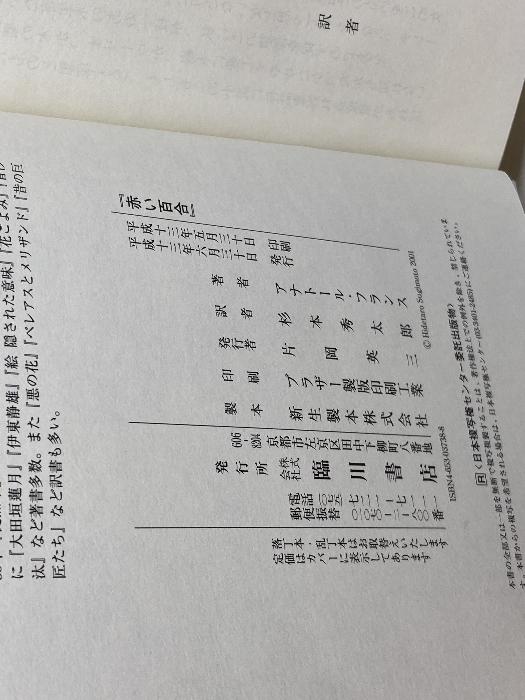 訳者
に『大田垣蓮月』『伊東静雄』『絵 隠された意味』『花ごよみ』『昔の巨
汰』など著書多数。また『悪の花』『ペレアスとメリザンド』
匠たち』など訳書も多い。
『赤い百合』
平成十三年五月三十日 印刷
平成十三年六月三十日 発行
著者 アナトール・フランス
訳者 杉本秀太郎
© Hidetaro Sugimoto 2001
発行者 片岡英三
印刷 ブラザー製版印刷工業
製本 新生製本株式会社
発行所 株式会社 臨川書店
606-8204 京都市左京区田中下柳町八番地
電話
郵便振替
落丁本・乱丁本はお取替えいたします
定価はカバーに表示してあります
ISBN4-653-03738-8
〈日本複写権センター委託出版物〉
本書の全部又は一部を無断で複写複製することは、著作権法上での例外を除き、禁じられていま
す。本書からの複写を希望される場合は、日本複写権センター(03-3401-2382)にご連絡ください。